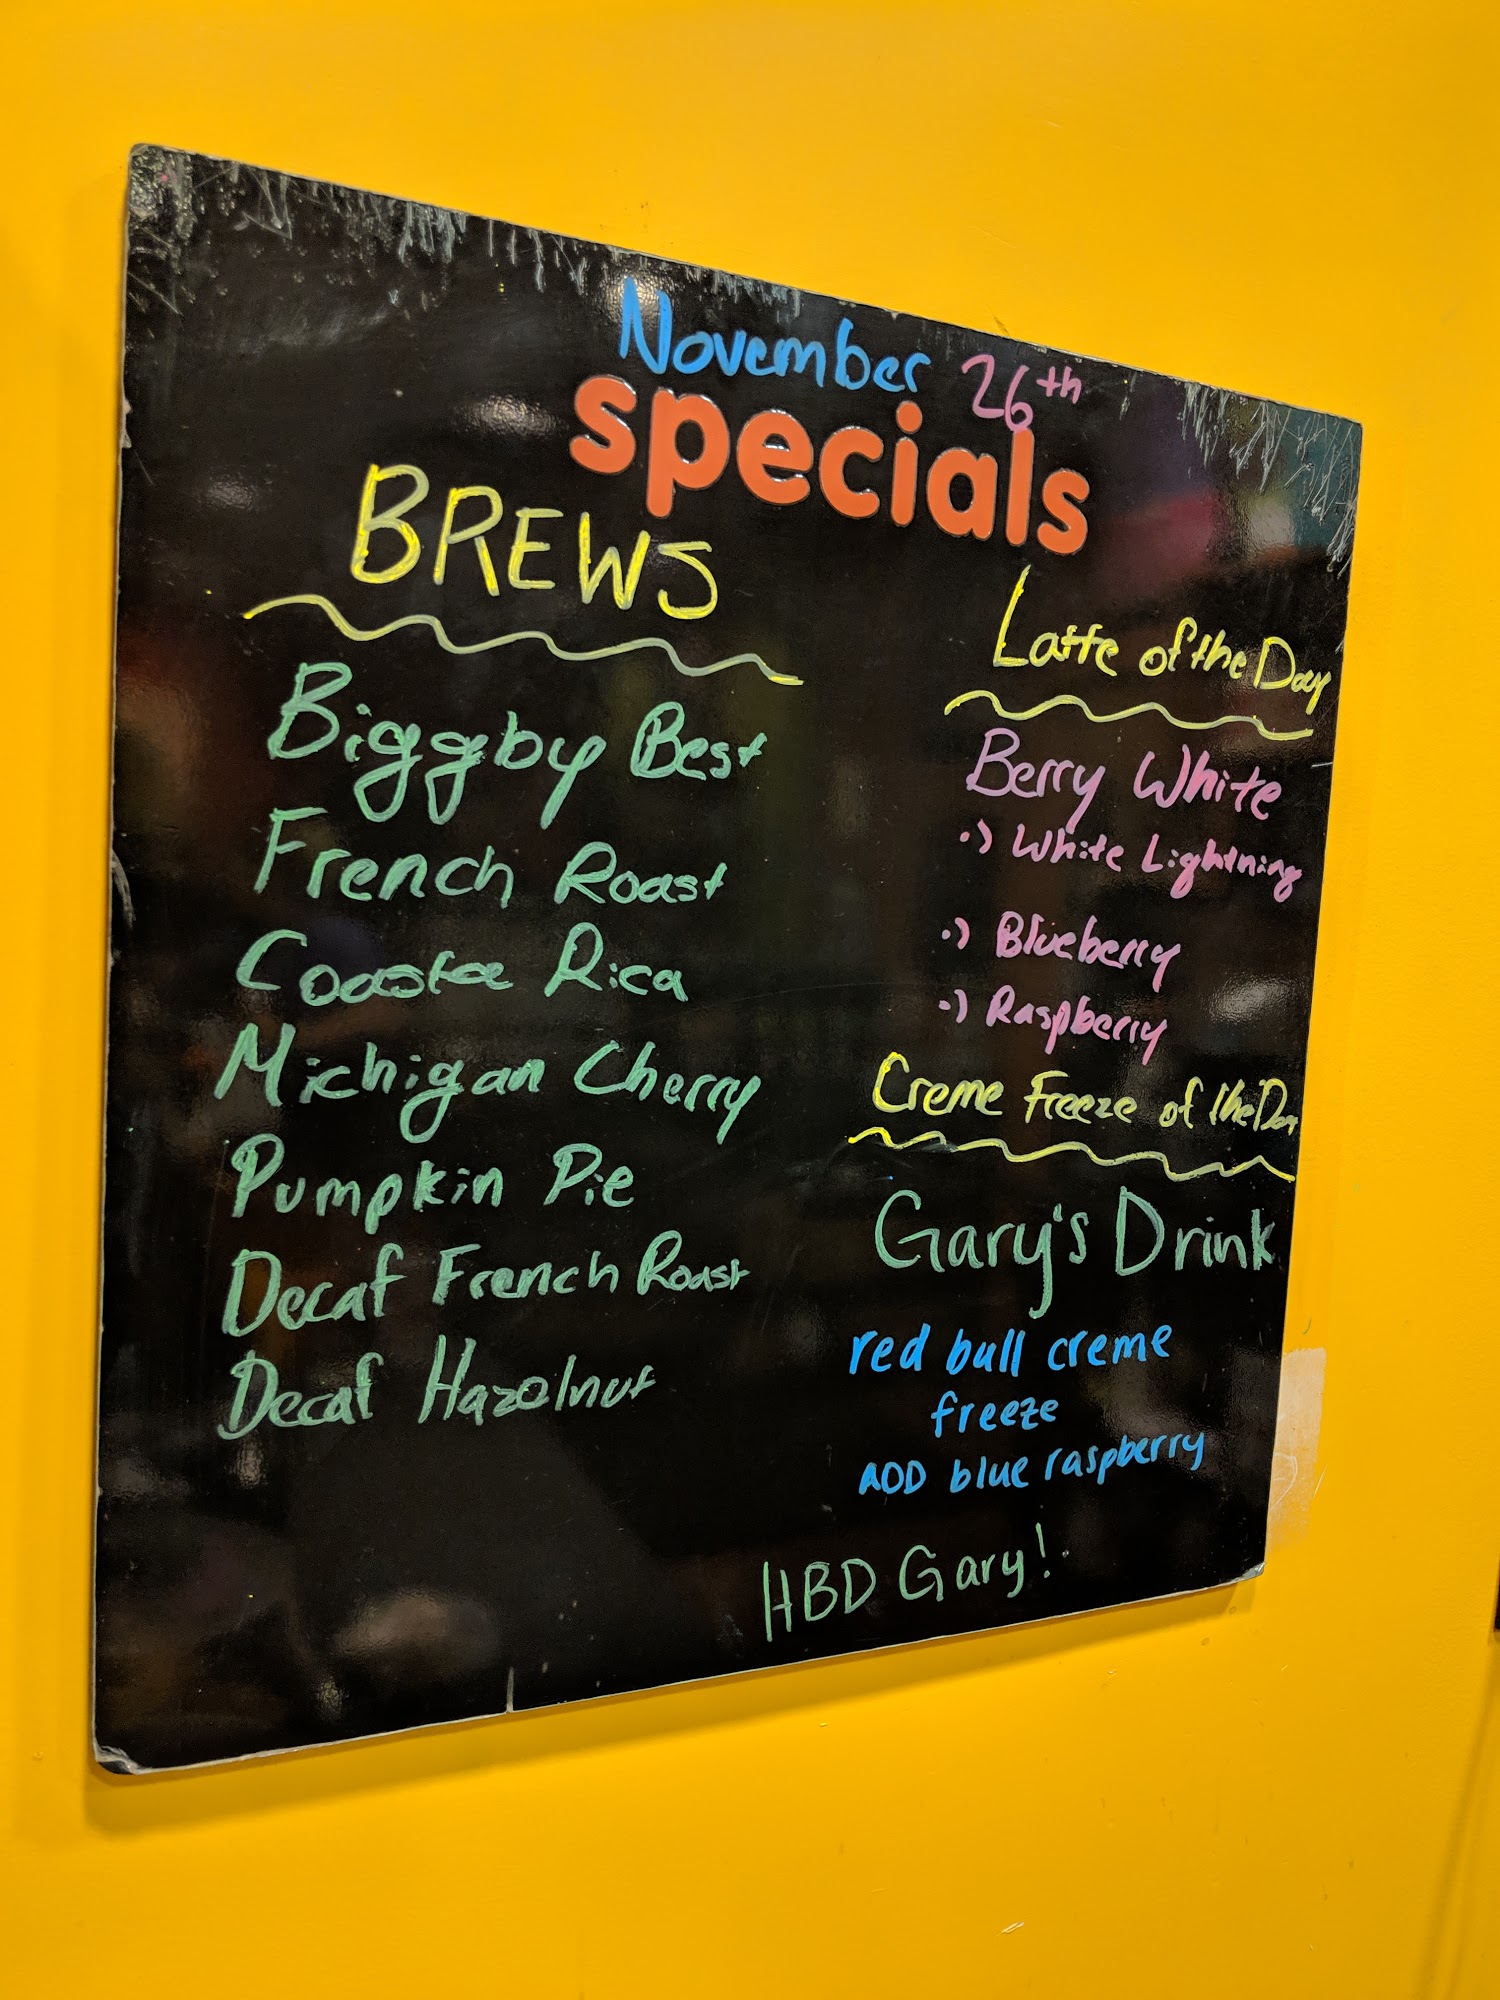 November 26th
specials
BREWS
Biggby Best
French Roast
Coasta Rica
Michigan Cherry
Pumpkin Pie
Decaf French Roast
Decaf Hazelnut
Latte of the Day
Berry White
•) White Lightning
•) Blueberry
•) Raspberry
Creme Freeze of the Day
Gary's Drink
red bull creme
freeze
ADD blue raspberry
HBD Gary!